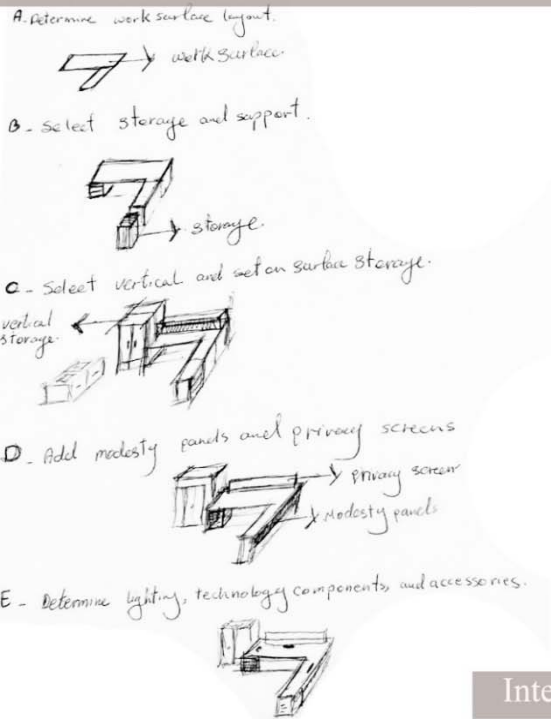 A. Determine work surface layout.
work surface
B - Select storage and support.
storage.
C - Select vertical and set on surface storage.
vertical
storage.
D - Add modesty panels and privacy screens
privacy screen
Modesty panels
E - Determine lighting, technology components, and accessories.
Inte